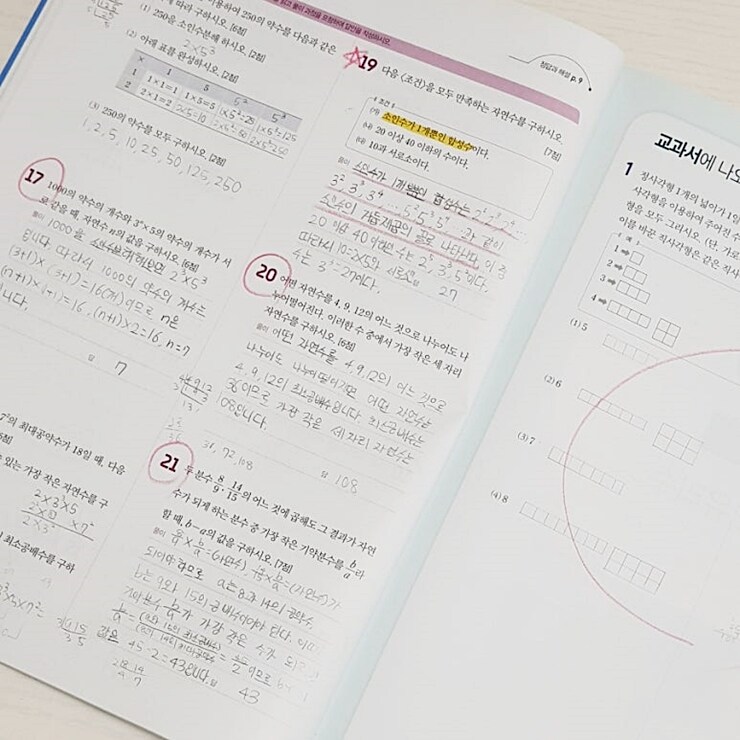 이용하여 250의 약수를 다음과 같은
따라 구하시오. [6점]
(1) 250을 소인수분해 하시오. [2점]
2×5³
(2) 아래 표를 완성하시오. [2점]
× 1 5 5² 5³
1 1×1=1 1×5=5 1×5²=25 1×5³=125
2 2×1=2 2×5=10 2×5²=50 2×5³=250
(3) 250의 약수를 모두 구하시오. [2점]
1, 2, 5, 10, 25, 50, 125, 250
17 1000의 약수의 개수와 3ⁿ×5의 약수의 개수가 서
로 같을 때, 자연수 n의 값을 구하시오. [6점]
풀이 1000을 소인수분해하면 2³×5³
입니다. 따라서 1000의 약수의 개수는
(3+1)×(3+1)=16(개)이므로 n은
(n+1)×1+1=16, (n+1)×2=16, n=7
입니다.
답 7
7²의 최대공약수가 18일 때, 다음
있는 가장 작은 자연수를 구
2×3²×5
×7²
2×3²
최소공배수를 구하
정답과 해설 p. 9
19 다음 <조건>을 모두 만족하는 자연수를 구하시오.
[7점]
조건
(가) 소인수가 1개뿐인 합성수이다.
(나) 20 이상 40 이하의 수이다.
(다) 10과 서로소이다.
풀이 소인수가 1개뿐인 합성수는 2², 2³, 2⁴ …
3², 3³, 3⁴ … 5², 5³, 5⁴ …과 같이
소인수의 거듭제곱의 꼴로 나타난다. 이 중
20 이상 40 이하인 수는 2⁵, 3³, 5²이다.
따라서 10=2×5와 서로소인
수는 3³=27이다.
답 27
20 어떤 자연수를 4, 9, 12의 어느 것으로 나누어도 나
누어떨어진다. 이러한 수 중에서 가장 작은 세 자리
자연수를 구하시오. [6점]
풀이 어떤 자연수를 4, 9, 12의 어느 것으로
나누어도 나누어떨어지면 어떤 자연수는
4, 9, 12의 최소공배수입니다. 최소공배수는
36이므로 가장 작은 세 자리 자연수는
108입니다.
36, 72, 108
답 108
21 두 분수 8/9, 14/15의 어느 것에 곱해도 그 결과가 자연
수가 되게 하는 분수 중 가장 작은 기약분수를 b/a라
할 때, b−a의 값을 구하시오. [7점]
풀이 8/9×b/a=(자연수), 14/15×b/a=(자연수)가
되어야 하므로 a는 8과 14의 공약수,
b는 9와 15의 공배수이어야 한다.
기약분수 b/a가 가장 작은 수가
45-2=43입니다.
답 43
교과서에 나오
1 정사각형 1개의 넓이가 1일
사각형을 이용하여 주어진 수
형을 모두 그리시오. (단, 가로
이를 바꾼 직사각형은 같은 직사
1 ⇒
2 ⇒
3 ⇒
4 ⇒
(1) 5
(2) 6
(3) 7
(4) 8